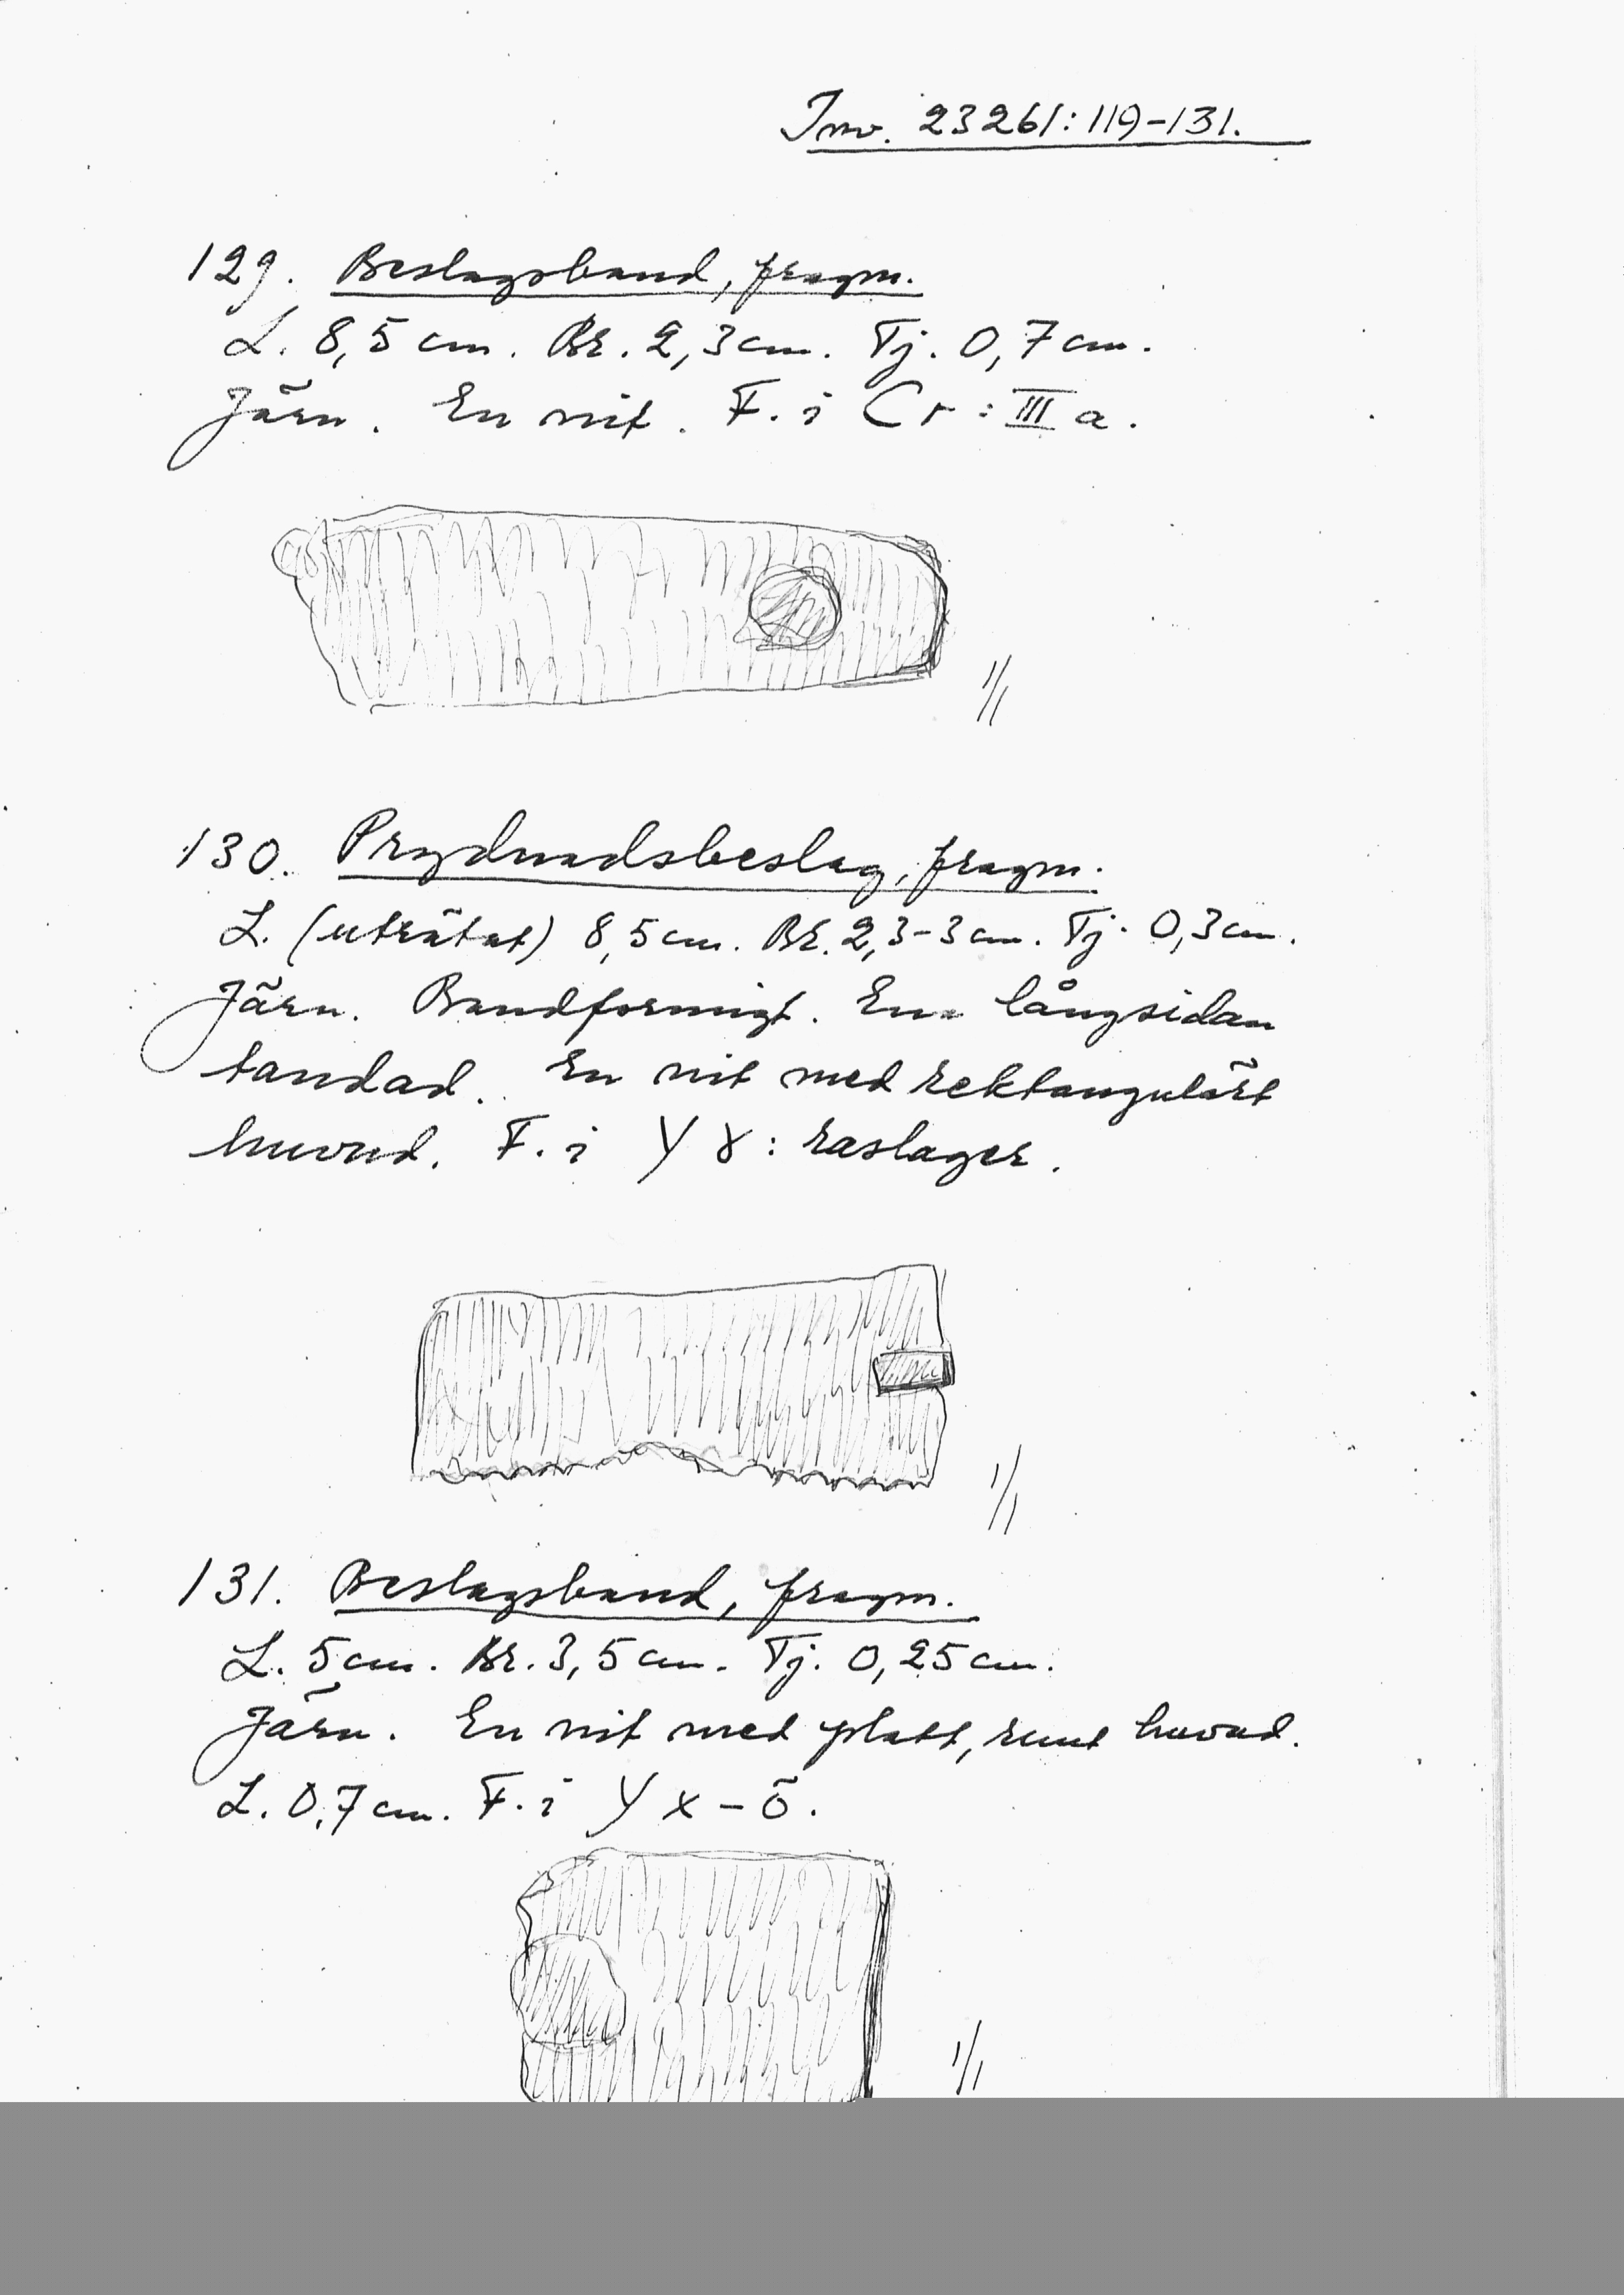 Inv. 23261:119-131.
129. Beslagsband, fragm.
L. 8,5 cm. Br. 2,3 cm. Tj. 0,7 cm.
Järn. En nit. F. i Cr: III a.
1/1
130. Prydnadsbeslag, fragm.
L. (uträtat) 8,5 cm. Br. 2,3-3 cm. Tj. 0,3 cm.
Järn. Bandformigt. Ena långsidan
tandad. En nit med rektangulärt
huvud. F. i Y 8: raslager.
1/1
131. Beslagsband, fragm.
L. 5 cm. Br. 3,5 cm. Tj. 0,25 cm.
Järn. En nit med platt, runt huvud.
L. 0,7 cm. F. i Y x - ö.
1/1